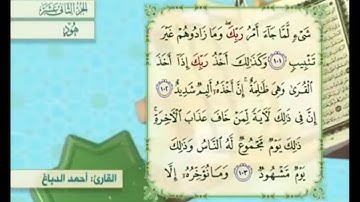 الجزء الثاني عشر
هُود
شَىْءٍ لَّمَّا جَآءَ أَمْرُ رَبِّكَ وَمَا زَادُوهُمْ غَيْرَ
تَتْبِيبٍ ١٠١ وَكَذَٰلِكَ أَخْذُ رَبِّكَ إِذَآ أَخَذَ
ٱلْقُرَىٰ وَهِىَ ظَٰلِمَةٌ إِنَّ أَخْذَهُۥٓ أَلِيمٌ شَدِيدٌ ١٠٢
إِنَّ فِى ذَٰلِكَ لَءَايَةً لِّمَنْ خَافَ عَذَابَ ٱلْءَاخِرَةِ
ذَٰلِكَ يَوْمٌ مَّجْمُوعٌ لَّهُ ٱلنَّاسُ وَذَٰلِكَ
يَوْمٌ مَّشْهُودٌ ١٠٣ وَمَا نُؤَخِّرُهُۥٓ إِلَّا
القارئ: أحمد الدباغ